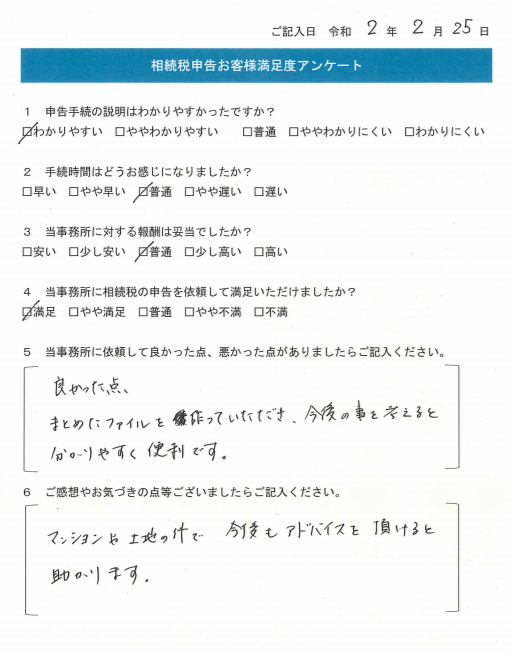 ご記入日 令和 2 年 2 月 25 日
相続税申告お客様満足度アンケート
1 申告手続の説明はわかりやすかったですか?
☑わかりやすい □ややわかりやすい □普通 □ややわかりにくい □わかりにくい
2 手続時間はどうお感じになりましたか?
□早い □やや早い ☑普通 □やや遅い □遅い
3 当事務所に対する報酬は妥当でしたか?
□安い □少し安い ☑普通 □少し高い □高い
4 当事務所に相続税の申告を依頼して満足いただけましたか?
☑満足 □やや満足 □普通 □やや不満 □不満
5 当事務所に依頼して良かった点、悪かった点がありましたらご記入ください。
良かった点、
まとめたファイルを作っていただき、今後の事を考えると
分かりやすく便利です。
6 ご感想やお気づきの点等ございましたらご記入ください。
マンションや土地の件で 今後もアドバイスを頂けると
助かります。